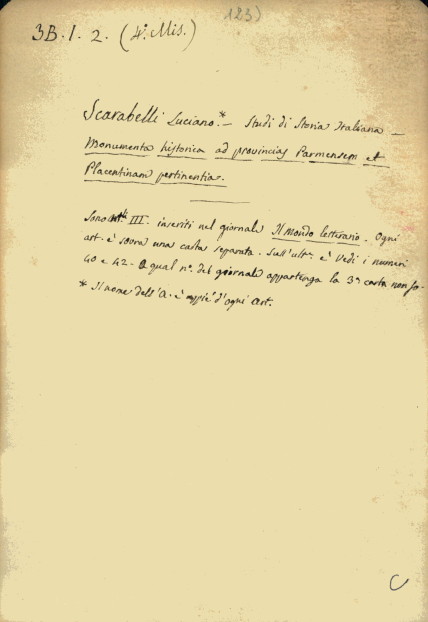 123)
3B. 1. 2. (4°. Mis.)
Scarabelli Luciano.* — Studi di Storia Italiana —
Monumenta historica ad provincias Parmensem et
Placentinam pertinentia.
Sono art. III. inseriti nel giornale Il Mondo letterario. Ogni
art. è sovra una carta separata. Sull'ult°. è Vedi i numeri
40 e 42 - A qual n°. del giornale appartenga la 3ª carta non so.
* Il nome dell'A. è appiè d'ogni art.
C